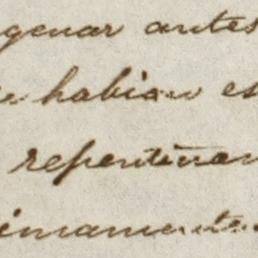 genar antes
habian es
repentinam
imamente.